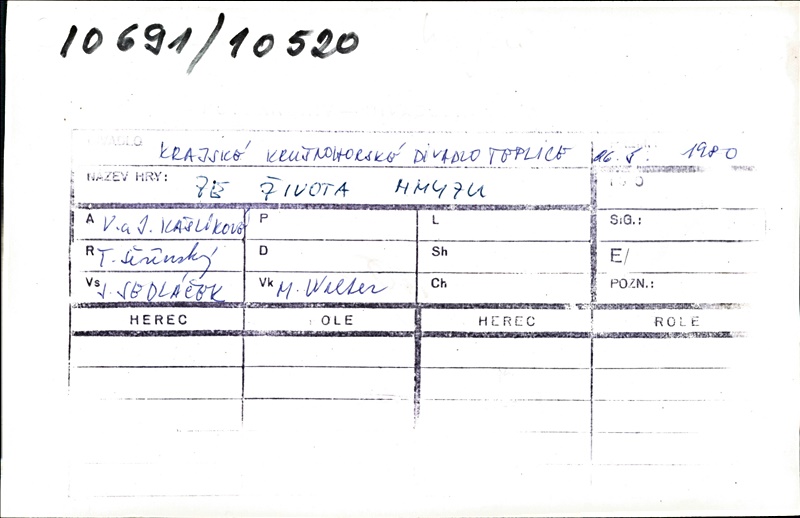 10691/10520
DIVADLO KRAJSKÉ KRUŠNOHORSKÉ DIVADLO TEPLICE 16. 5. 1980
NÁZEV HRY: ZE ŽIVOTA HMYZU
A V. a J. KAŠLÍKOVÉ P L SIG.:
R T. Šeřinský D Sh E/
Vs J. SEDLÁČEK Vk M. Walter Ch POZN.:
HEREC OLE HEREC ROLE